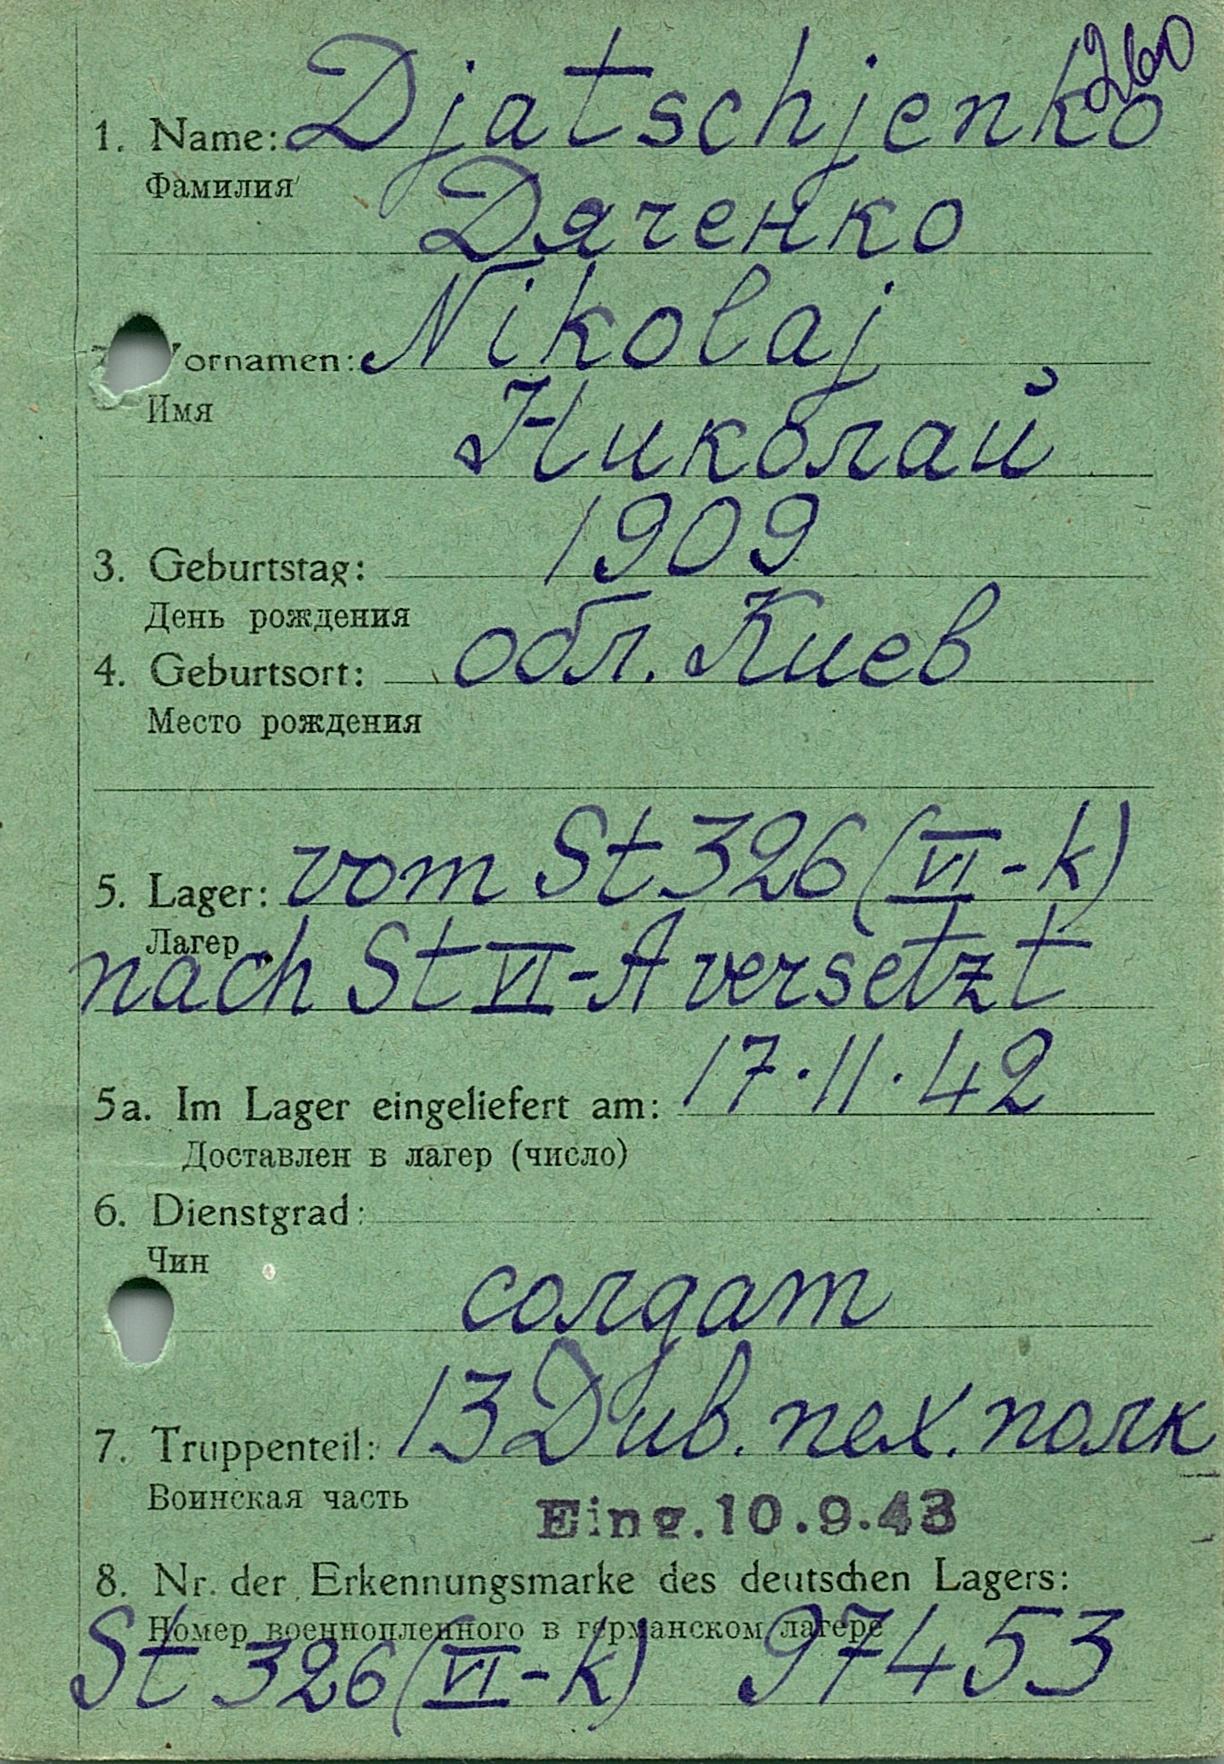 260
1. Name: Djatschjenko
Фамилия
Дяченко
Vornamen: Nikolaj
Имя
Николай
1909
3. Geburtstag:
День рождения
4. Geburtsort: обл. Киев
Место рождения
5. Lager: vom St 326 (VI-k)
Лагер
nach St VI-A versetzt
5a. Im Lager eingeliefert am: 17.11.42
Доставлен в лагер (число)
6. Dienstgrad:
Чин
солдат
7. Truppenteil: 13 Див. пех. полк
Воинская часть
Eing. 10.9.43
8. Nr. der Erkennungsmarke des deutschen Lagers:
Номер военнопленного в германском лагере
St 326 (VI-k) 97453